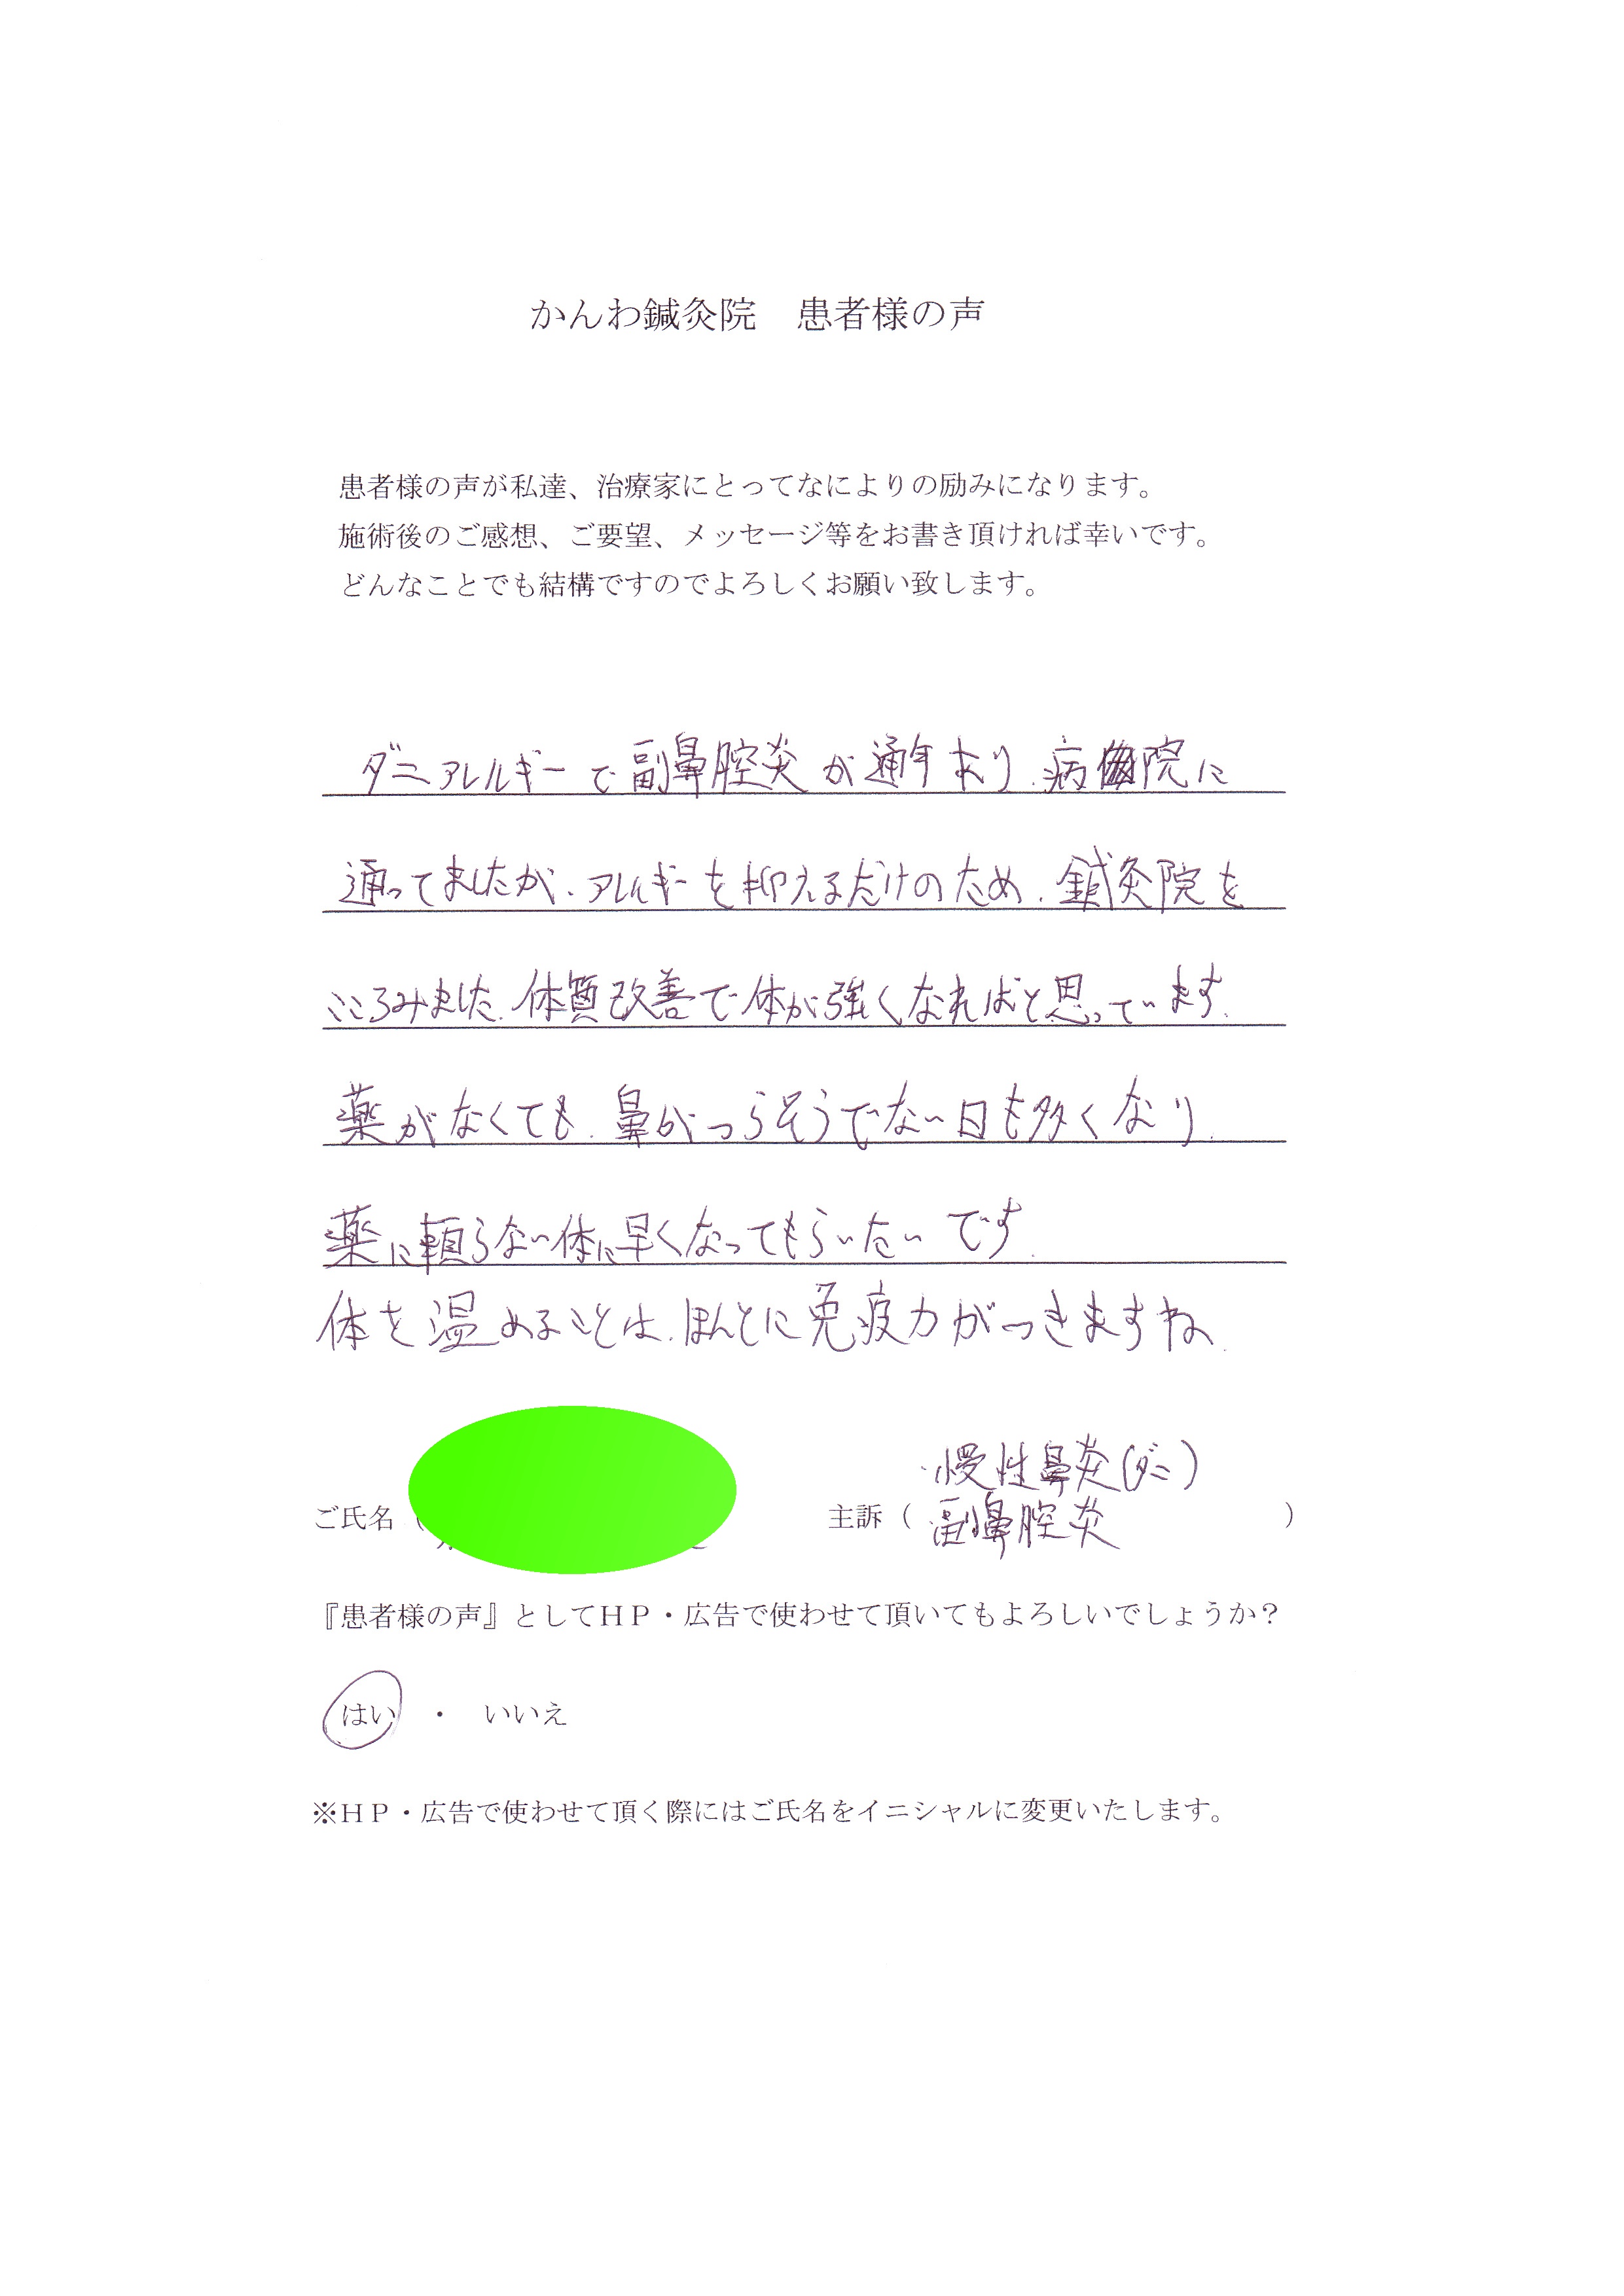 かんわ鍼灸院　患者様の声
患者様の声が私達、治療家にとってなによりの励みになります。
施術後のご感想、ご要望、メッセージ等をお書き頂ければ幸いです。
どんなことでも結構ですのでよろしくお願い致します。
ダニアレルギーで副鼻腔炎が通年あり、病院に
通ってましたが、アレルギーを抑えるだけのため、鍼灸院を
こころみました。体質改善で体が強くなればと思っています。
薬がなくても、鼻がつらそうでない日も多くなり、
薬に頼らない体に早くなってもらいたいです。
体を温めることは、ほんとに免疫力がつきますね。
慢性鼻炎(ダニ)
ご氏名（　主訴（副鼻腔炎）
『患者様の声』としてＨＰ・広告で使わせて頂いてもよろしいでしょうか？
はい　・　いいえ
※ＨＰ・広告で使わせて頂く際にはご氏名をイニシャルに変更いたします。